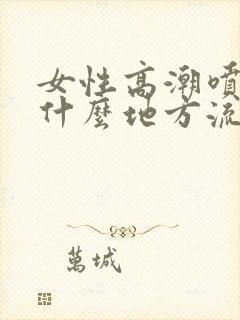 女性高潮噴
什麼地方流
萬城